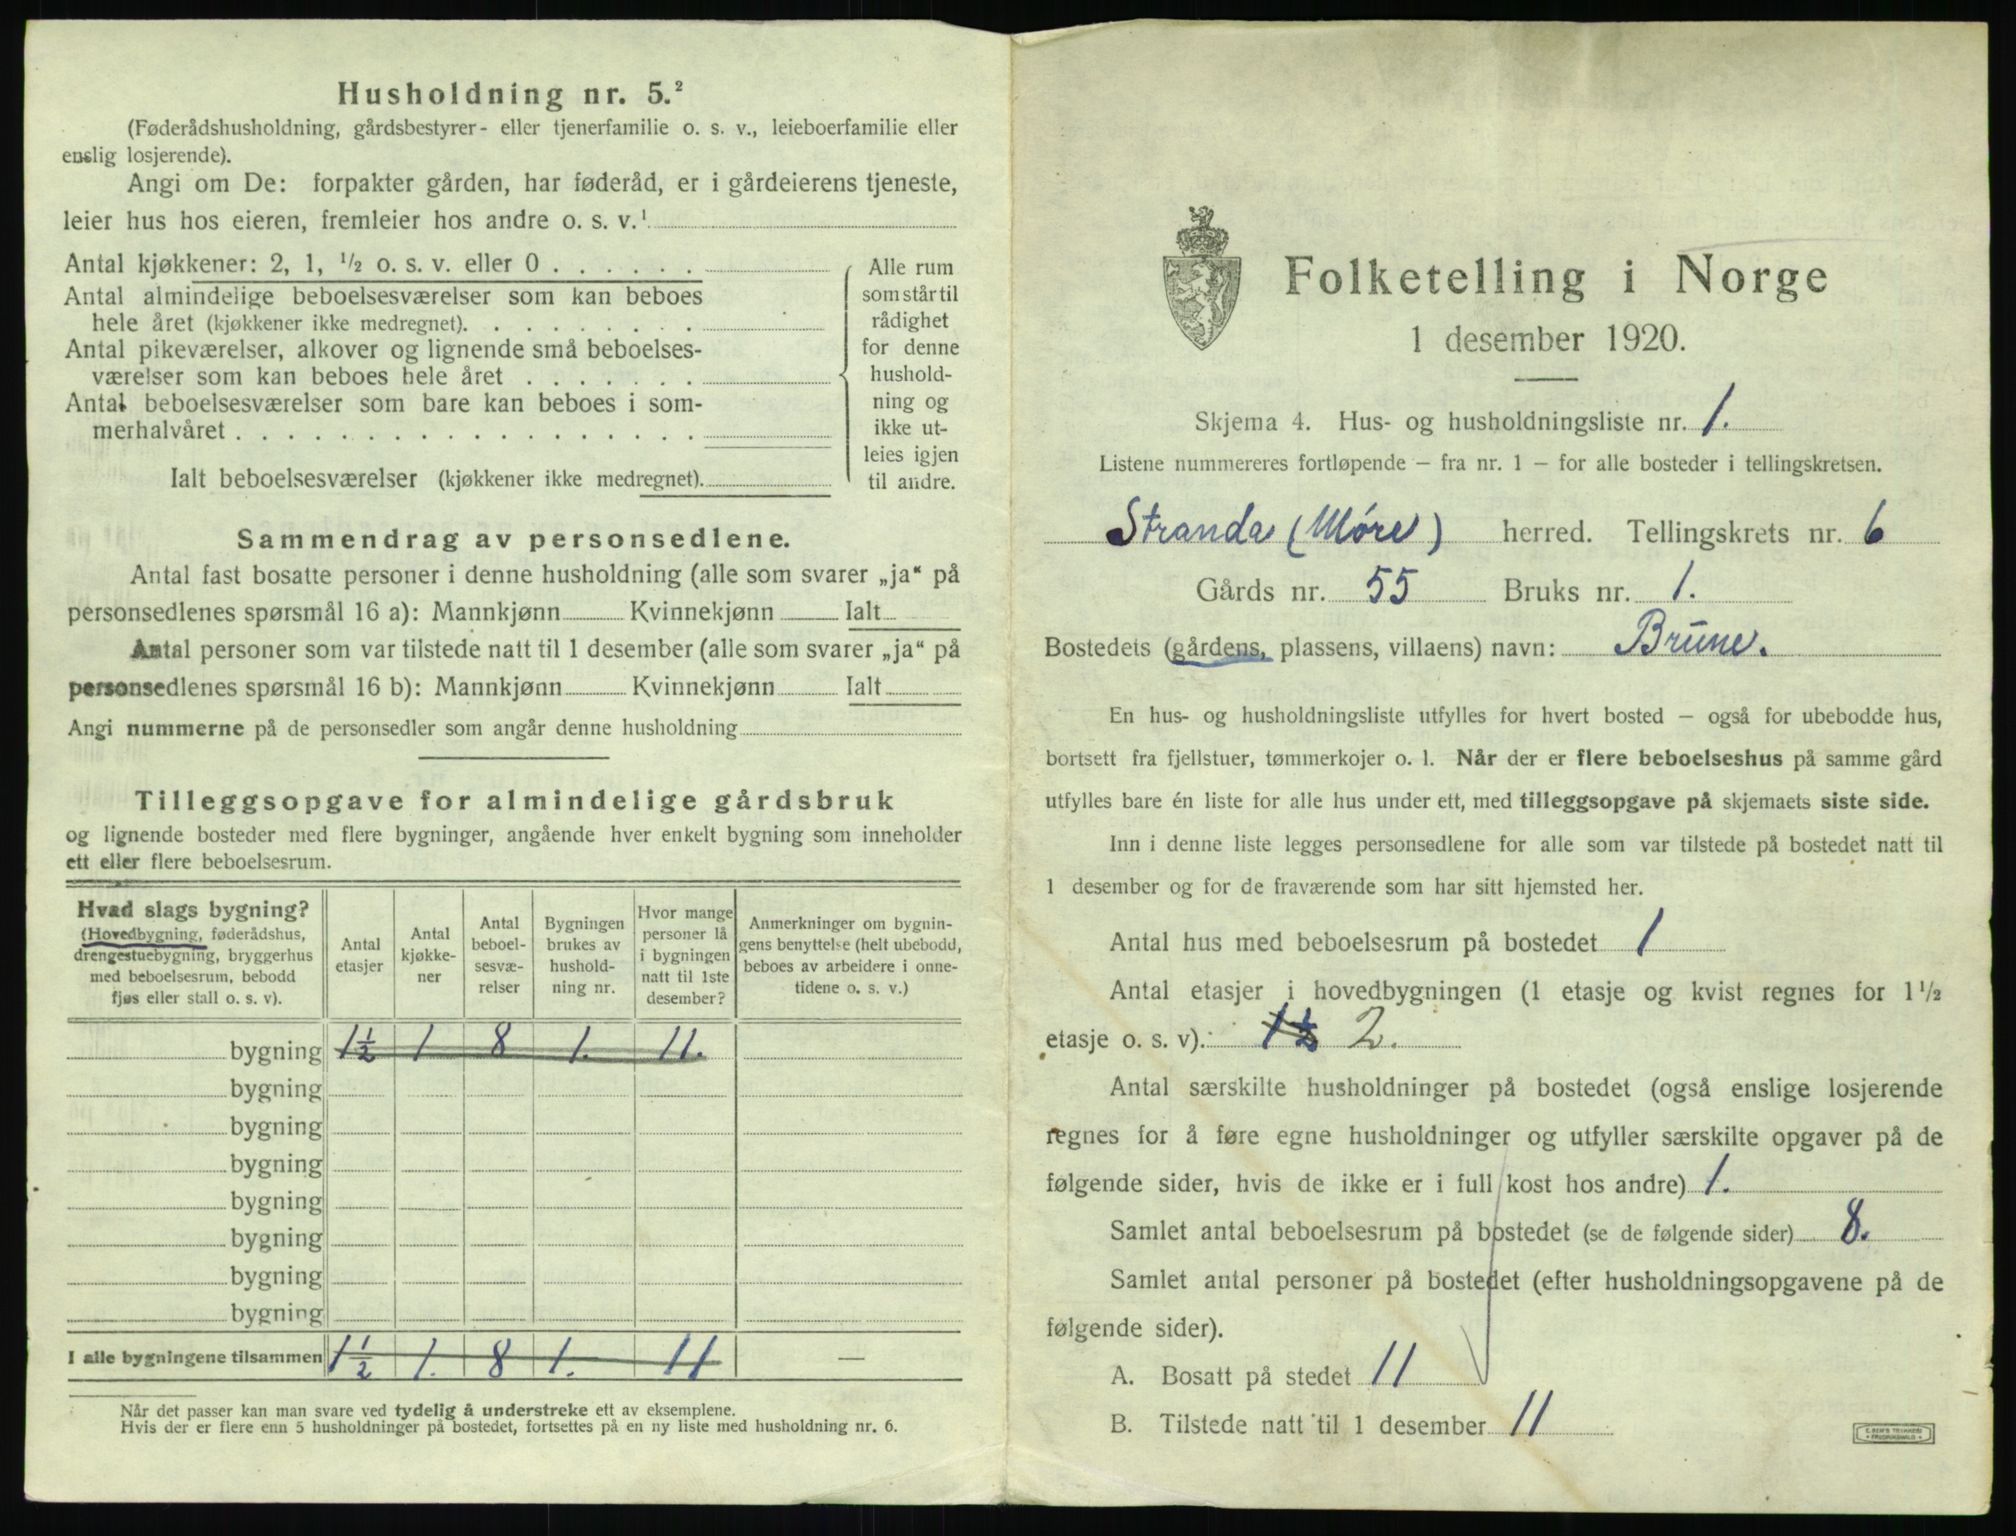 Husholdning nr. 5.²
(Føderådshusholdning, gårdsbestyrer- eller tjenerfamilie o. s. v., leieboerfamilie eller
enslig losjerende).
Angi om De: forpakter gården, har føderåd, er i gårdeierens tjeneste,
leier hus hos eieren, fremleier hos andre o. s. v.¹
Antal kjøkkener: 2, 1, ½ o. s. v. eller 0 . . . . . .
Antal almindelige beboelsesværelser som kan beboes
hele året (kjøkkener ikke medregnet). . . . . . . . .
Antal pikeværelser, alkover og lignende små beboelses-
værelser som kan beboes hele året . . . . . . .
Antal beboelsesværelser som bare kan beboes i som-
merhalvåret . . . . . . . . . . . . . . . . . .
Ialt beboelsesværelser (kjøkkener ikke medregnet).
Alle rum
som står til
rådighet
for denne
hushold-
ning og
ikke ut-
leies igjen
til andre.
Sammendrag av personsedlene.
Antal fast bosatte personer i denne husholdning (alle som svarer „ja“ på
personsedlenes spørsmål 16 a): Mannkjønn Kvinnekjønn Ialt
Antal personer som var tilstede natt til 1 desember (alle som svarer „ja“ på
personsedlenes spørsmål 16 b): Mannkjønn Kvinnekjønn Ialt
Angi nummerne på de personsedler som angår denne husholdning
Tilleggsopgave for almindelige gårdsbruk
og lignende bosteder med flere bygninger, angående hver enkelt bygning som inneholder
ett eller flere beboelsesrum.
Hvad slags bygning?
(Hovedbygning, føderådshus,
drengestuebygning, bryggerhus
med beboelsesrum, bebodd
fjøs eller stall o. s. v).
Antal
etasjer
Antal
kjøkke-
ner
Antal
beboel-
sesvæ-
relser
Bygningen
brukes av
hushold-
ning nr.
Hvor mange
personer lå
i bygningen
natt til 1ste
desember?
Anmerkninger om bygnin-
gens benyttelse (helt ubebodd,
beboes av arbeidere i onne-
tidene o. s. v.)
bygning 1½ 1 8 1. 11.
bygning
bygning
bygning
bygning
bygning
bygning
bygning
I alle bygningene tilsammen 1½ 1. 8 1. 11 —
Når det passer kan man svare ved tydelig å understreke ett av eksemplene.
Hvis der er flere enn 5 husholdninger på bostedet, fortsettes på en ny liste med husholdning nr. 6.
Folketelling i Norge
1 desember 1920.
Skjema 4. Hus- og husholdningsliste nr. 1.
Listene nummereres fortløpende — fra nr. 1 — for alle bosteder i tellingskretsen.
Stranda (Møre) herred. Tellingskrets nr. 6
Gårds nr. 55 Bruks nr. 1.
Bostedets (gårdens, plassens, villaens) navn: Brūne.
En hus- og husholdningsliste utfylles for hvert bosted — også for ubebodde hus,
bortsett fra fjellstuer, tømmerkojer o. l. Når der er flere beboelseshus på samme gård
utfylles bare én liste for alle hus under ett, med tilleggsopgave på skjemaets siste side.
Inn i denne liste legges personsedlene for alle som var tilstede på bostedet natt til
1 desember og for de fraværende som har sitt hjemsted her.
Antal hus med beboelsesrum på bostedet 1
Antal etasjer i hovedbygningen (1 etasje og kvist regnes for 1½
etasje o. s. v). 1½ 2.
Antal særskilte husholdninger på bostedet (også enslige losjerende
regnes for å føre egne husholdninger og utfyller særskilte opgaver på de
følgende sider, hvis de ikke er i full kost hos andre) 1.
Samlet antal beboelsesrum på bostedet (se de følgende sider) 8.
Samlet antal personer på bostedet (efter husholdningsopgavene på de
følgende sider).
A. Bosatt på stedet 11
B. Tilstede natt til 1 desember 11